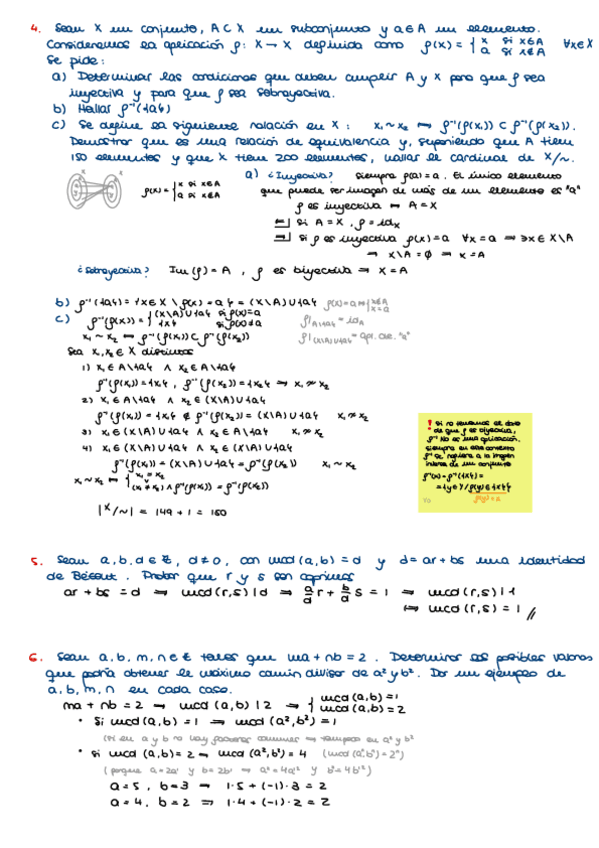 4. Sean X un conjunto, A ⊂ X un subconjunto y a ∈ A un elemento.
Consideramos la aplicación ρ: X → X definida como ρ(x) = { x si x∈A ∀x∈X
a si x∉A
Se pide:
a) Determinar las condiciones que deben cumplir A y X para que ρ sea
inyectiva y para que ρ sea sobreyectiva.
b) Hallar ρ⁻¹({a})
c) Se define la siguiente relación en X: x₁ ~ x₂ ⟺ ρ⁻¹(ρ(x₁)) ⊂ ρ⁻¹(ρ(x₂)).
Demostrar que es una relación de equivalencia y, suponiendo que A tiene
150 elementos y que X tiene 200 elementos, hallar el cardinal de X/~.
ρ(x) = { x si x∈A
a si x∉A
a) ¿Inyectiva? Siempre ρ(a) = a. El único elemento
que puede ser imagen de más de un elemento es "a"
ρ es inyectiva ⟺ A = X
⇐ Si A = X, ρ = id_X
⇒ Si ρ es inyectiva ρ(x) = a ∀x = a ⇒ ∄x ∈ X\A
⇒ X\A = ∅ ⇒ X = A
¿Sobreyectiva? Im(ρ) = A, ρ es biyectiva ⇒ X = A
b) ρ⁻¹({a}) = {x∈X \ ρ(x) = a} = (X\A) ∪ {a} ρ(x) = a ⟺ { x∉A
x = a
c) ρ⁻¹(ρ(x)) = { (X\A) ∪ {a} si ρ(x) = a
{x} si ρ(x) ≠ a
ρ|A\{a} = id_A
x₁ ~ x₂ ⟺ ρ⁻¹(ρ(x₁)) ⊂ ρ⁻¹(ρ(x₂))
ρ|(X\A)∪{a} = apl. cte. "a"
Sea x₁, x₂ ∈ X distintos
1) x₁ ∈ A\{a} ∧ x₂ ∈ A\{a}
ρ⁻¹(ρ(x₁)) = {x₁}, ρ⁻¹(ρ(x₂)) = {x₂} ⇒ x₁ ≁ x₂
2) x₁ ∈ A\{a} ∧ x₂ ∈ (X\A) ∪ {a}
ρ⁻¹(ρ(x₁)) = {x₁} ⊄ ρ⁻¹(ρ(x₂)) = (X\A) ∪ {a} x₁ ≁ x₂
3) x₁ ∈ (X\A) ∪ {a} ∧ x₂ ∈ A\{a} x₁ ≁ x₂
4) x₁ ∈ (X\A) ∪ {a} ∧ x₂ ∈ (X\A) ∪ {a}
ρ⁻¹(ρ(x₁)) = (X\A) ∪ {a} = ρ⁻¹(ρ(x₂)) x₁ ~ x₂
x₁ ~ x₂ ⟺ { x₁ = x₂
∨
(x₁ ≠ x₂) ∧ ρ⁻¹(ρ(x₁)) = ρ⁻¹(ρ(x₂))
|X/~| = 149 + 1 = 150
! Si no tenemos el dato
de que ρ es biyectiva,
ρ⁻¹ no es una aplicación.
Siempre en este contexto
ρ⁻¹ se refiere a la imagen
inversa de un conjunto
ρ⁻¹(x) = ρ⁻¹({x}) =
= {y∈Y / ρ(y) ∈ {x}}
ρ(y) = x
5. Sean a, b, d ∈ ℤ, d ≠ 0, con mcd(a,b) = d y d = ar + bs una identidad
de Bézout. Probar que r y s son coprimos
ar + bs = d ⇒ mcd(r,s) | d ⇒ a/d r + b/d s = 1 ⇒ mcd(r,s) | 1
⟺ mcd(r,s) = 1 //
6. Sean a, b, m, n ∈ ℤ tales que ma + nb = 2. Determinar los posibles valores
que podría obtener el máximo común divisor de a² y b². Dar un ejemplo de
a, b, m, n en cada caso.
ma + nb = 2 ⇒ mcd(a,b) | 2 ⇒ { mcd(a,b) = 1
mcd(a,b) = 2
• Si mcd(a,b) = 1 ⇒ mcd(a²,b²) = 1
(si en a y b no hay factores comunes ⇒ tampoco en a² y b²
• si mcd(a,b) = 2 ⇒ mcd(a²,b²) = 4 (mcd(aⁿ,bⁿ) = 2ⁿ)
(porque a = 2a' y b = 2b' ⇒ a² = 4a'² y b² = 4b'²)
a = 5, b = 3 ⇒ 1·5 + (-1)·3 = 2
a = 4, b = 2 ⇒ 1·4 + (-1)·2 = 2